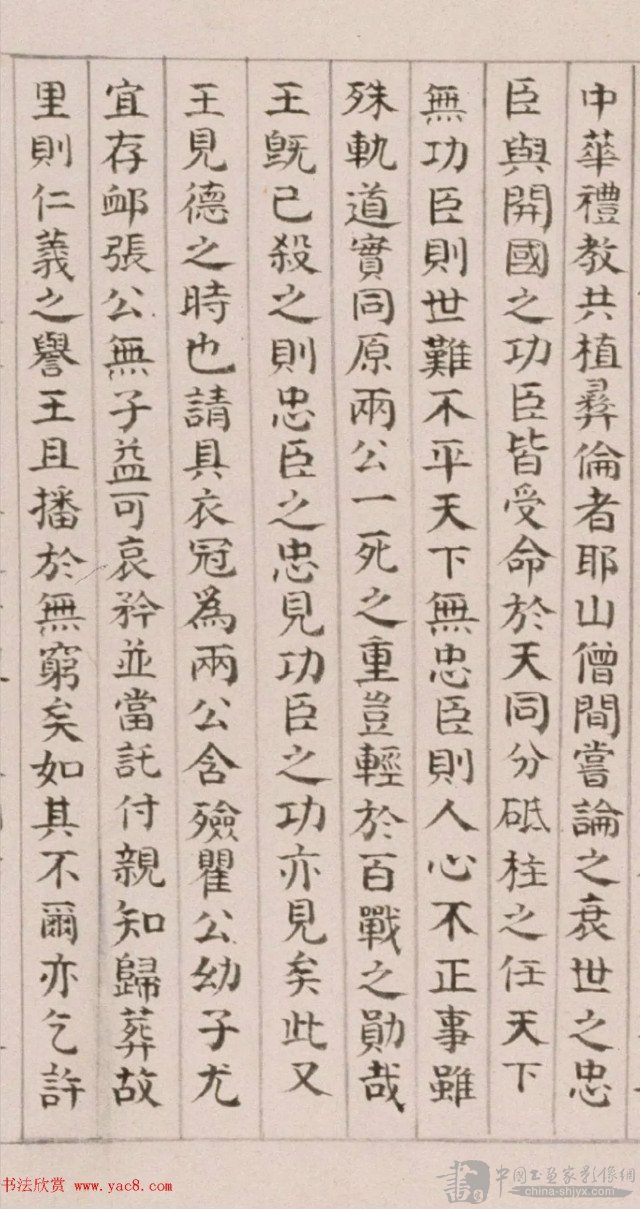 中華禮教共植彝倫者耶山僧間嘗論之衰世之忠
臣與開國之功臣皆受命於天同分砥柱之任天下
無功臣則世難不平天下無忠臣則人心不正事雖
殊軌道實同原兩公一死之重豈輕於百戰之勛哉
王既已殺之則忠臣之忠見功臣之功亦見矣此又
王見德之時也請具衣冠為兩公含殮瞿公幼子尤
宜存卹張公無子益可哀矜並當託付親知歸葬故
里則仁義之譽王且播於無窮矣如其不爾亦乞許
书法欣赏 www.yac8.com
中国书画家影像網
china-shjyx.com